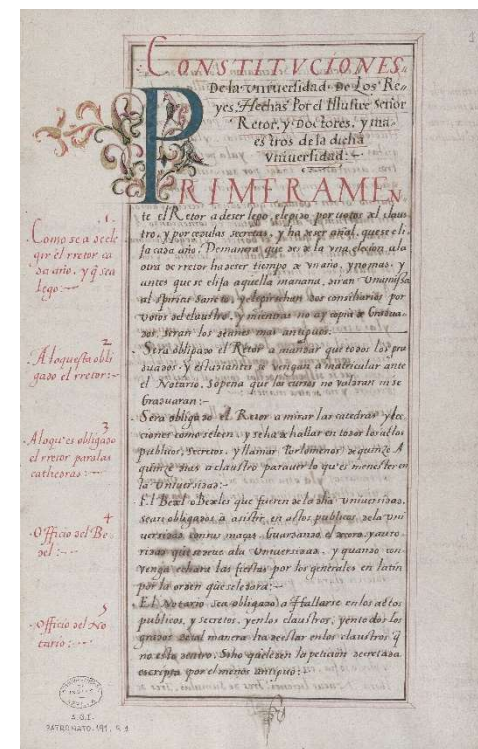 CONSTITVCIONES
De la vniuersidad De Los Re-
yes, Hechas Por el Illustre Señor
Retor, y Doctores, y ma-
estros de la dicha
vniuersidad:-
PRIMERAMEN
te el Retor a de ser lego, elegido por votos del claus
tro, y por cedulas secretas, y ha de ser añal, que se eli
ja cada año Demanera que desde la vna elecion ala
otra de rretor ha de ser tiempo de vn año, y no mas, y
antes que se elija aquella manana, diran vna missa
al spiritus sancto, y elegirse han dos consiliarios por
votos del claustro, y mientras no ay copia de Gradua-
dos, seran los mas antiguos.
1
Como se a de ele
gir el rretor ca
da año, y q̃ sea
lego:-
Sera obligado el Retor a mandar que todos los gra
duados y estudiantes se vengan a matricular ante
el Notario, so pena que los cursos no valdran ni se
Graduaran:-
2
A lo que esta obli
gado el rretor:-
Sera obligado el Retor a mirar las catedras y lec
ciones como se leen, y se ha de hallar en todos los actos
publicos, secretos, y llamar Por lo menos de quinze A
quinze dias a claustro para ver lo qu'es menester en
la Vniuersidad:-
3
A lo qu'es obligado
el rretor para las
cathedras:-
El Bedel o Bedeles que fueren de la dha vniuersidad,
sean obligados a asistir en actos publicos de la vni
uersidad con sus maças Guardando el decoro, y auto-
ridad que se deue a la Vniuersidad, y quando con-
venga echara las fiestas por los generales en latin
por la orden que se le dara:-
4
Officio del Be
del:-
El Notario sea obligado a Hallarse en los actos
publicos, y secretos, y en los claustros, y en todos los
grados de tal manera ha de estar en los claustros q̃
no este dentro, sino que le den la peticion decretada
escripta por el menos antiguo:-
5
Officio del No
tario:-
A.G.I.
PATRONATO, 191, R 1